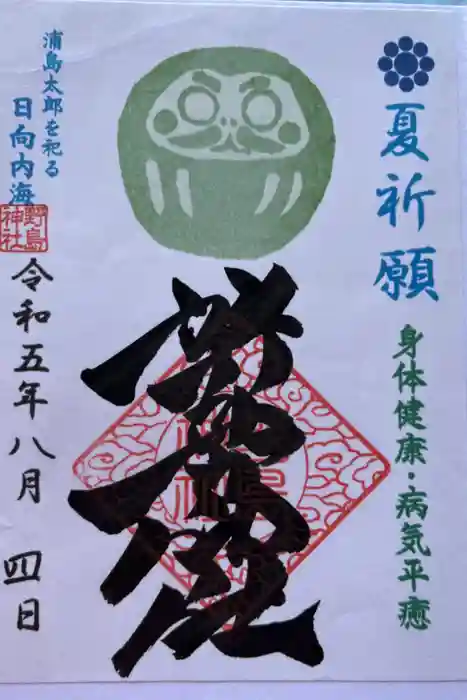 夏祈願
身体健康・病気平癒
浦島太郎を祀る
日向内海
野島
神社
令和五年八月 四日